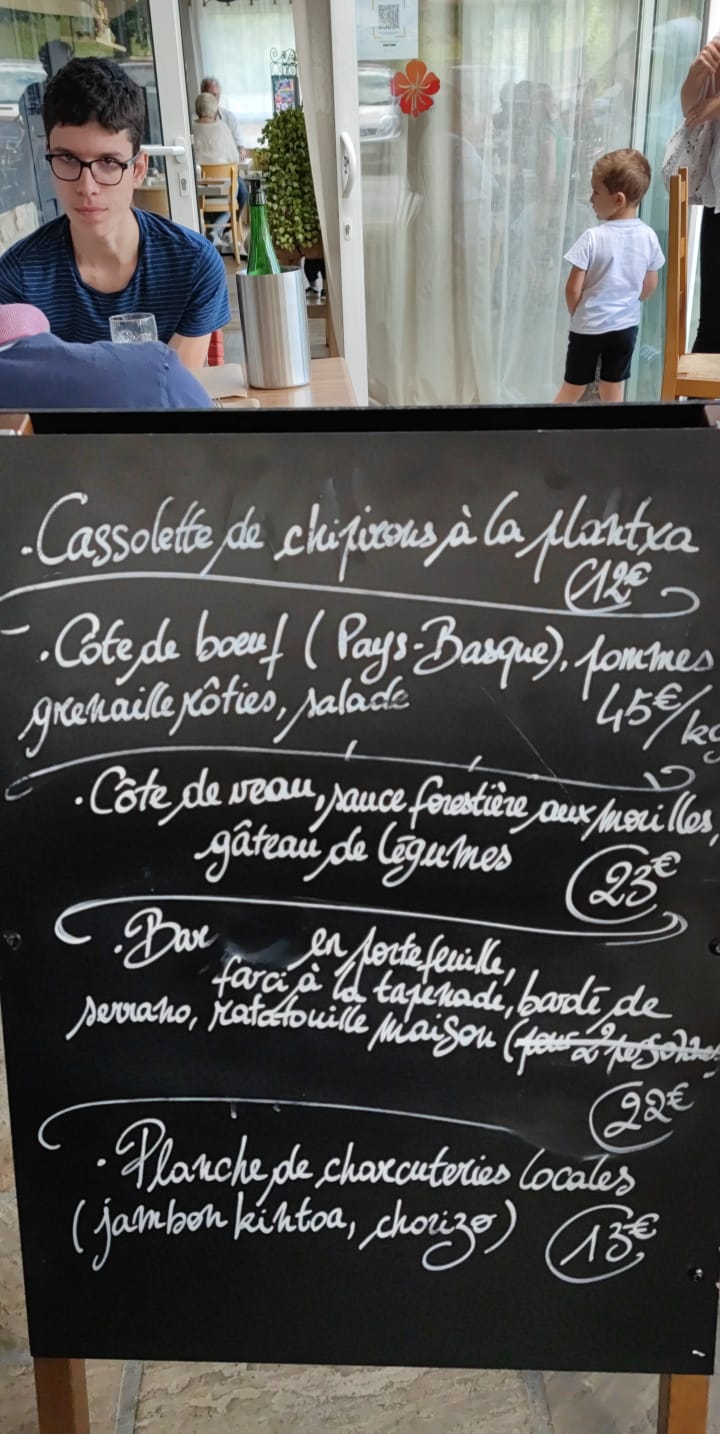 . Cassolette de chipirons à la plantxa
12€
. Côte de boeuf (Pays-Basque), pommes
grenaille rôties, salade 45€/kg
. Côte de veau, sauce forestière aux morilles,
gâteau de légumes 23€
. Bar en portefeuille,
farci à la tapenade, bardé de
serrano, ratatouille maison (pour 2 personnes
22€
. Planche de charcuteries locales
(jambon kintoa, chorizo) 13€